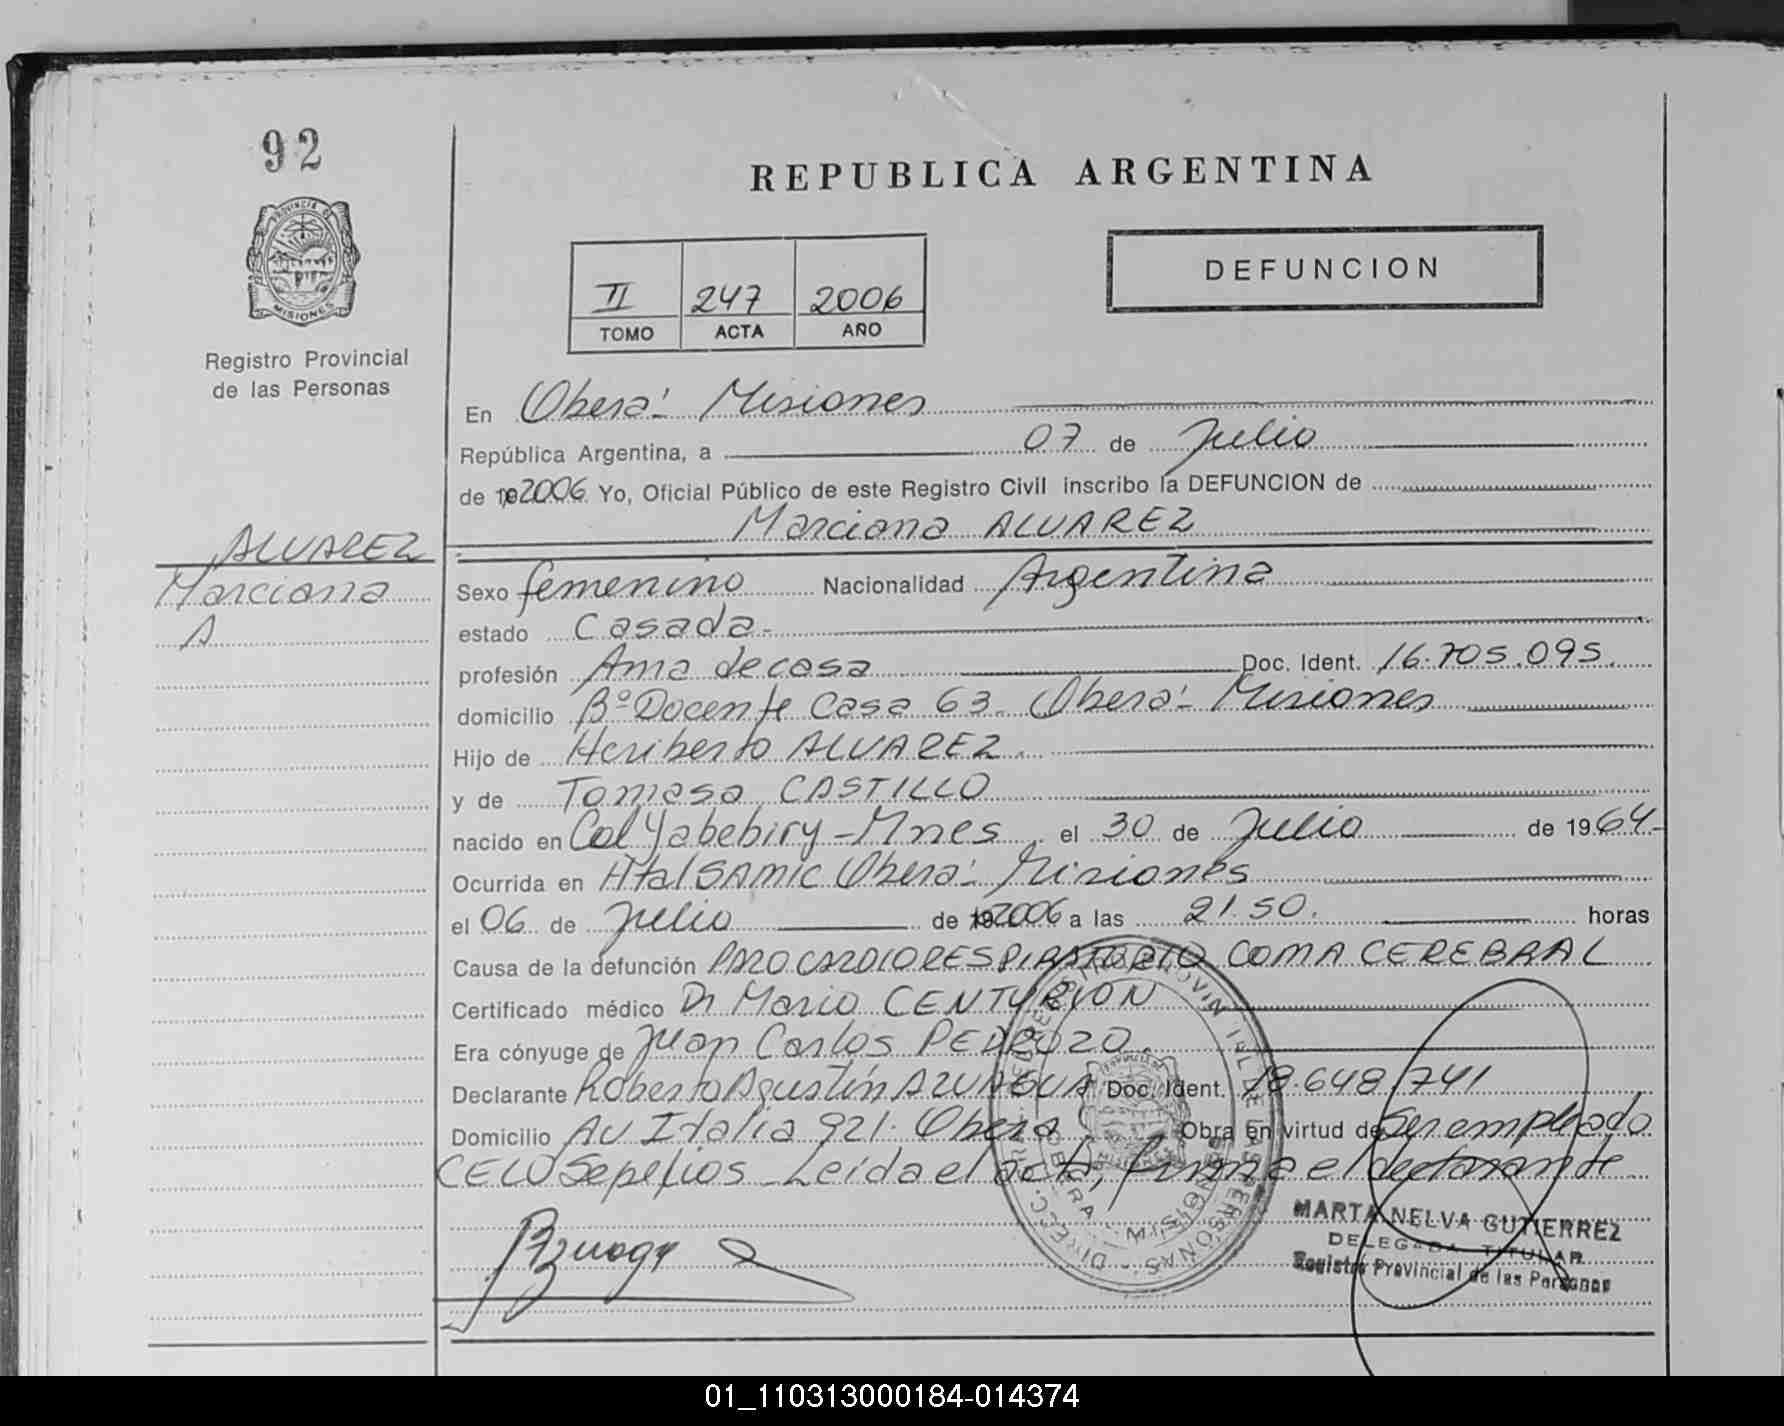 92
PROVINCIA DE
MISIONES
Registro Provincial
de las Personas
ALVAREZ
Marciana
A
REPUBLICA ARGENTINA
II 247 2006
TOMO ACTA AÑO
DEFUNCION
En Oberá - Misiones
República Argentina, a 07 de Julio
de 19 2006 Yo, Oficial Público de este Registro Civil inscribo la DEFUNCION de
Marciana ALVAREZ
Sexo femenino Nacionalidad Argentina
estado Casada.-
profesión Ama de casa Doc. Ident. 16.705.095.
domicilio Bº Docente Casa 63. Oberá - Misiones
Hijo de Heriberto ALVAREZ.
y de Tomasa CASTILLO
nacido en Col Yabebiry - Mnes el 30 de Julio de 1964-
Ocurrida en Htal SAMIC Oberá - Misiones
el 06 de Julio de 19 2006 a las 21.50. horas
Causa de la defunción PARO CARDIORESPIRATORIO COMA CEREBRAL
Certificado médico Dr Mario CENTURION
Era cónyuge de Juan Carlos PEDROZO.
Declarante Roberto Agustín AZUAGUA Doc. Ident. 18.648.741
Domicilio Av Italia 921. Oberá Obra en virtud de Ser empleado
CELO Sepelios - Leída el acta, firma el declarante
MARTA NELVA GUTIERREZ
DELEGADA TITULAR
Registro Provincial de las Personas
01_110313000184-014374